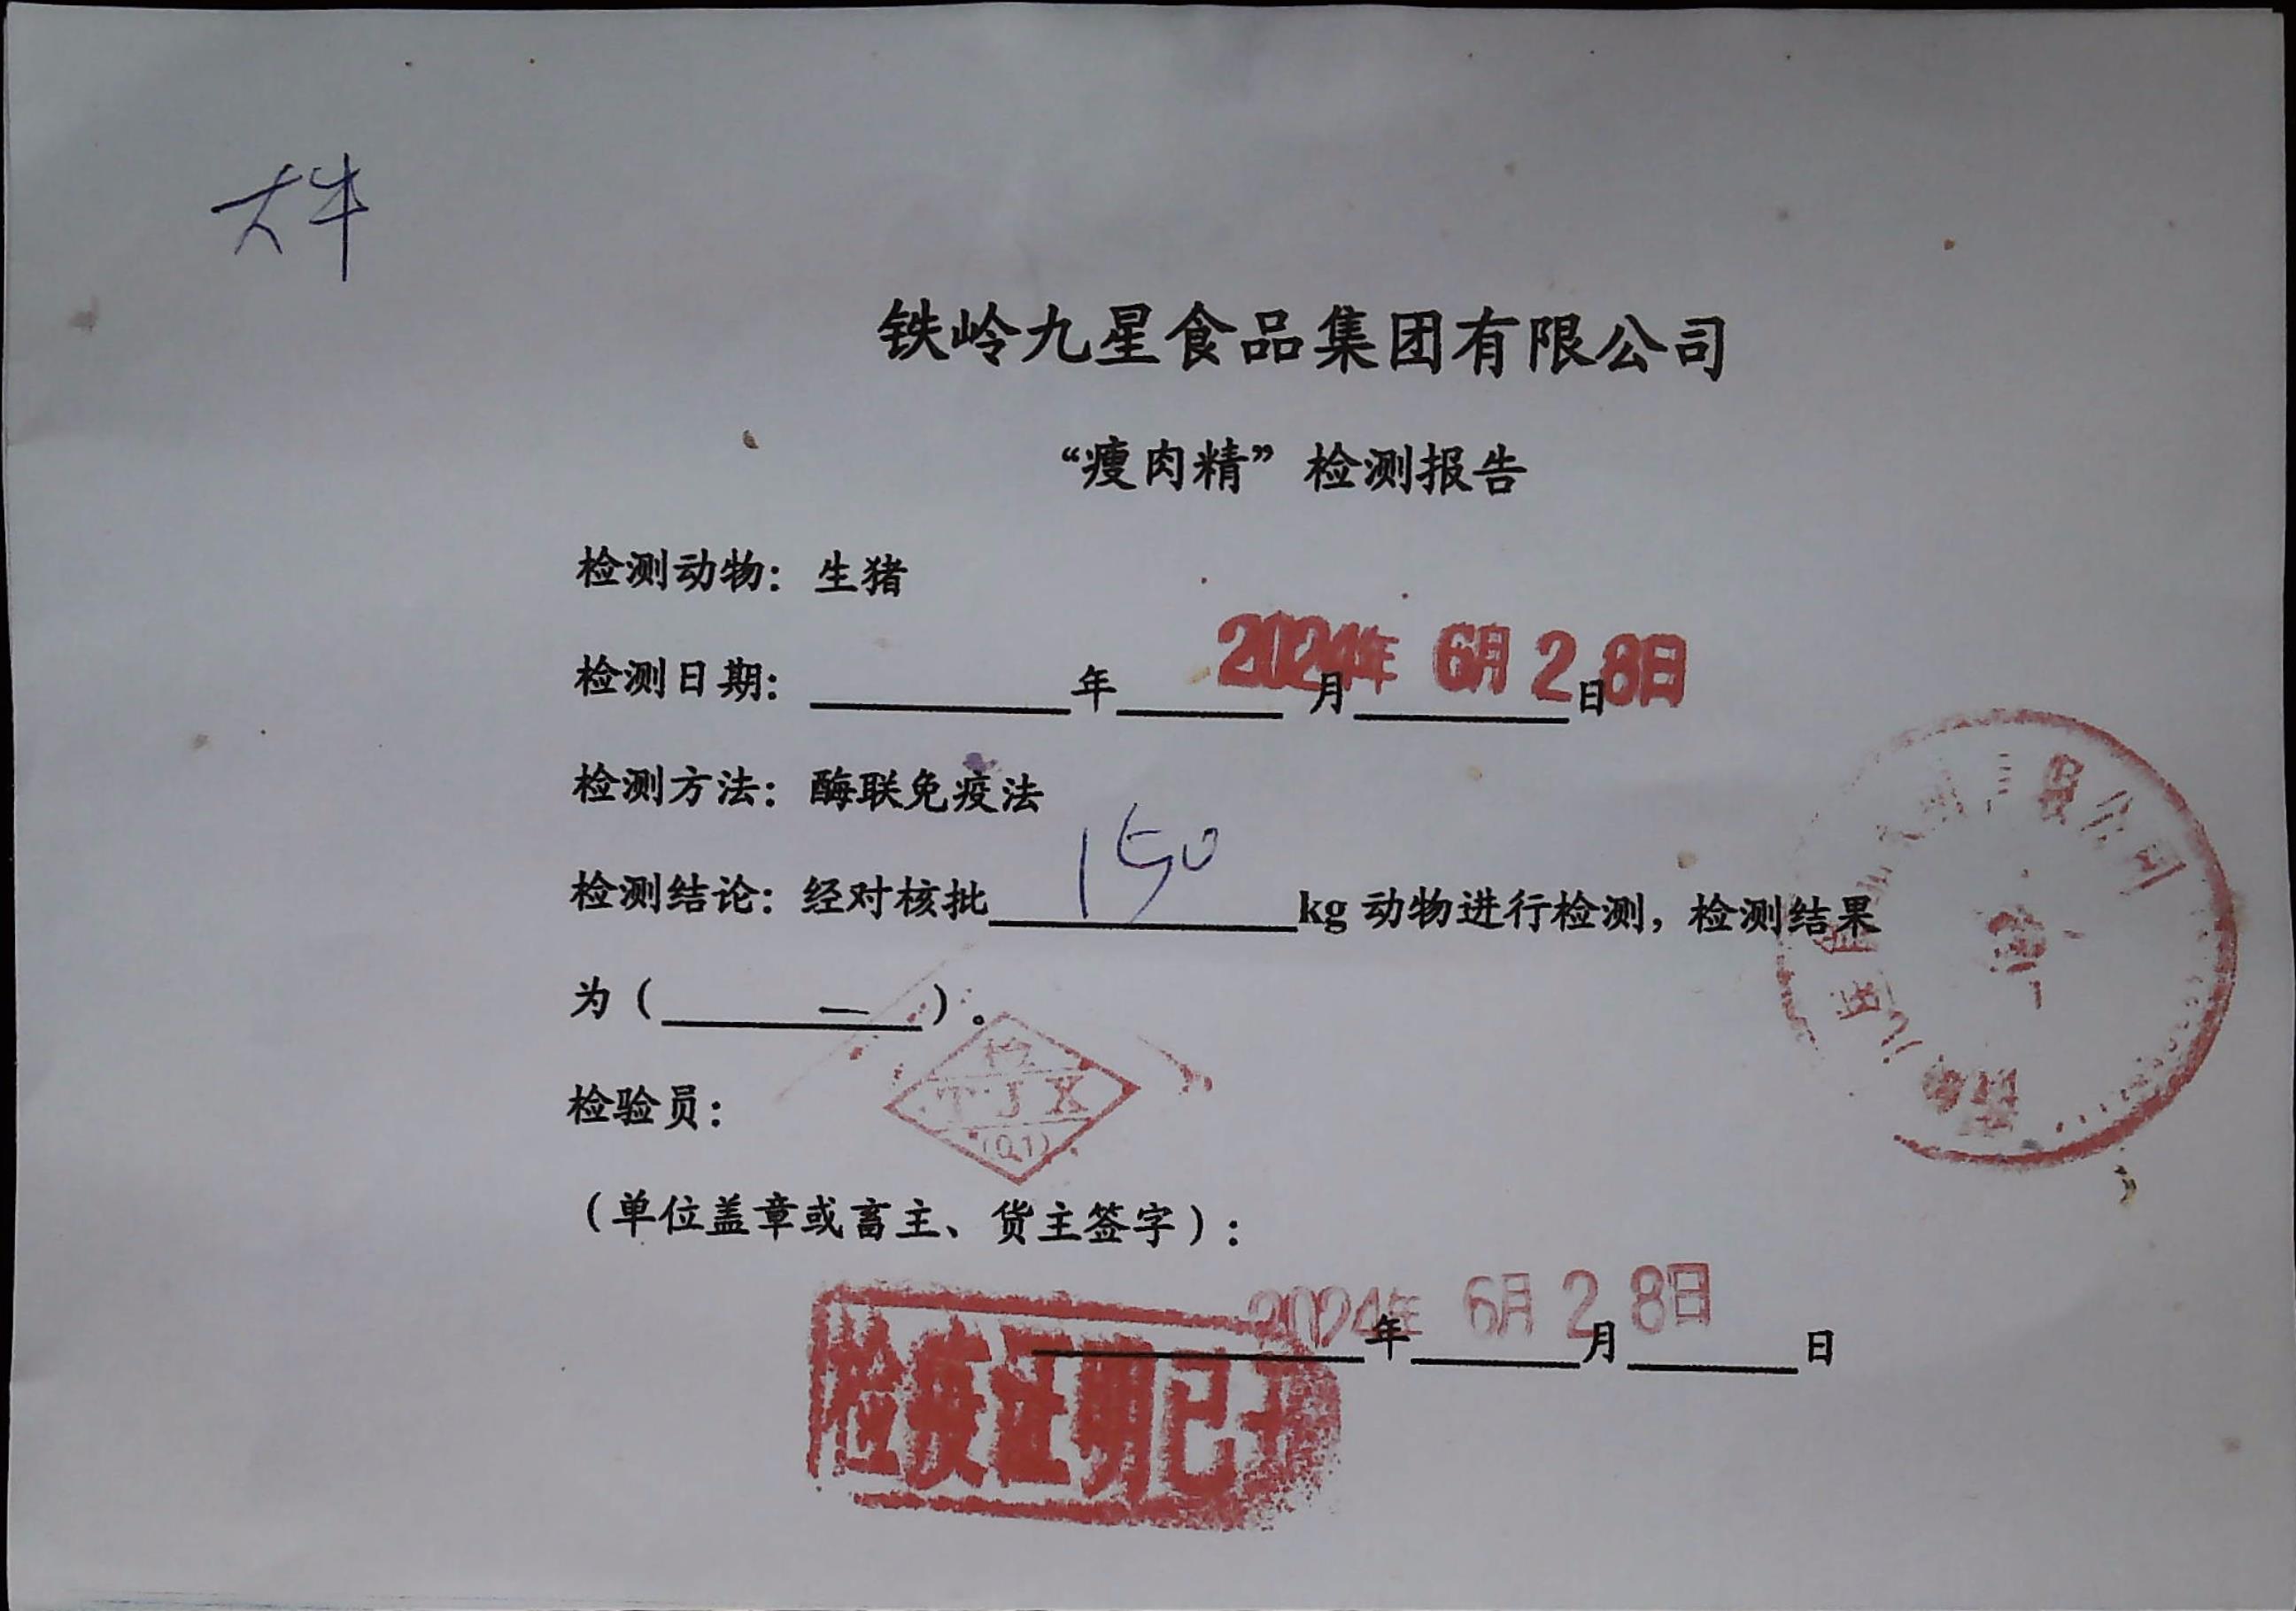 大牛
铁岭九星食品集团有限公司
“瘦肉精”检测报告
检测动物：生猪
检测日期：____年____月____日
2024年 6月28日
检测方法：酶联免疫法
检测结论：经对核批150kg动物进行检测，检测结果
为（—）。
检验员：
检
TJX
(01)
（单位盖章或畜主、货主签字）：
2024年 6月28日
____年____月____日
检疫证明已开